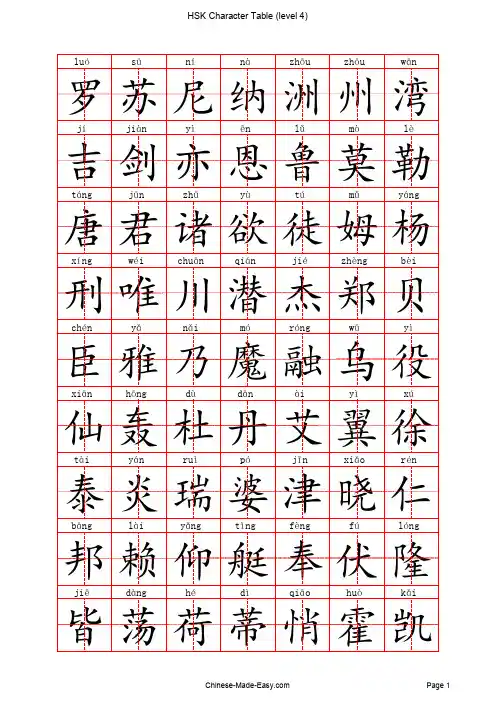 HSK Character Table (level 4)
luó sū ní nà zhōu zhōu wān
罗 苏 尼 纳 洲 州 湾
jí jiàn yì ēn lǔ mò lè
吉 剑 亦 恩 鲁 莫 勒
táng jūn zhū yù tú mǔ yáng
唐 君 诸 欲 徒 姆 杨
xíng wéi chuān qián jié zhèng bèi
刑 唯 川 潜 杰 郑 贝
chén yǎ nǎi mó róng wū yì
臣 雅 乃 魔 融 乌 役
xiān hōng dù dān ài yì xú
仙 轰 杜 丹 艾 翼 徐
tài yán ruì pó jīn xiǎo rén
泰 炎 瑞 婆 津 晓 仁
bāng lài yǎng tǐng fèng fú lóng
邦 赖 仰 艇 奉 伏 隆
jiē dàng hé dì qiǎo huò kǎi
皆 荡 荷 蒂 悄 霍 凯
Chinese-Made-Easy.com Page 1